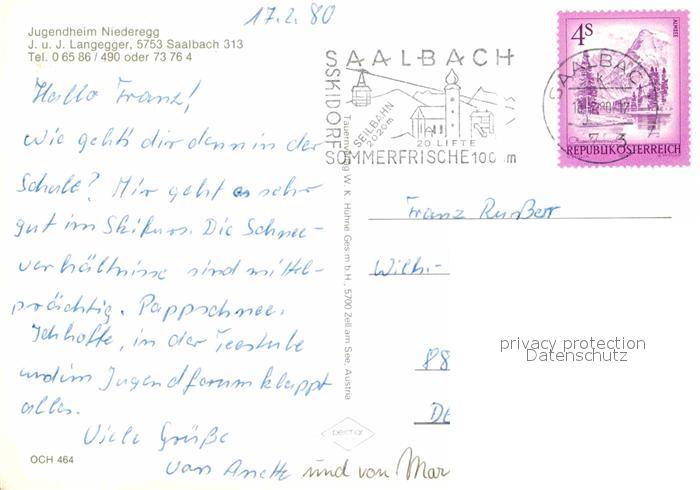 17.2.80
Jugendheim Niederegg
J. u. J. Langegger, 5753 Saalbach 313
Tel. 0 65 86 / 490 oder 73 76 4
Hallo Franz!
Wie geht's dir denn in der
Schule? Mir geht es sehr
gut im Skikurs. Die Schnee-
verhältnisse sind mittel-
prächtig. Pappschnee.
Ich hoffe, in der Teestube
und im Jugendforum klappt
alles.
Viele Grüße
von Anette und von Mar
OCH 464
SAALBACH
SKIDORF
SEILBAHN
2020m
20 LIFTE
SOMMERFRISCHE 100 m
4S
ALMSEE
REPUBLIK ÖSTERREICH
SAALBACH
Tauernverlag W. K. Hühne Ges.m.b.H., 5700 Zell am See, Austria
Franz
Wilh.-
88
privacy protection
Datenschutz